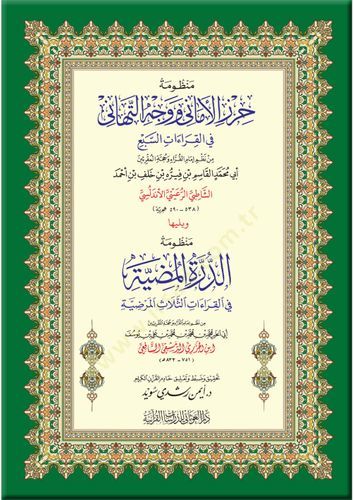 منظومة
حرز الأماني ووجه التهاني
في القراءات السبع
من نظم إمام القراء وحجة المقرئين
أبي محمد القاسم بن فيره بن خلف بن أحمد
الشاطبي الرعيني الأندلسي
(٥٣٨ - ٥٩٠ هجرية)
ويليها
منظومة
الدرة المضية
في القراءات الثلاث المرضية
أبي الخير محمد بن محمد بن محمد بن علي بن يوسف
ابن الجزري الدمشقي الشافعي
(٧٥١ - ٨٣٣هـ)
تحقيق وضبط وتعليق خادم القرآن الكريم
د. أيمن رشدي سويد
دار الغوثاني للدراسات القرآنية